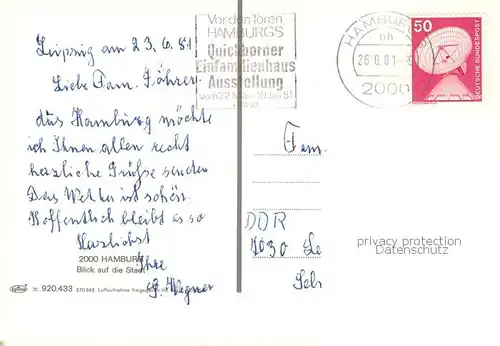 Leipzig am 23.6.81
Liebe Fam. Föhrer
aus Hamburg möchte
ich Ihnen allen recht
herzliche Grüße senden
Das Wetter ist schön.
Hoffentlich bleibt es so
Herzlichst
Ihre
G. Wegner
2000 HAMBURG
Blick auf die Stadt
31 920.433 270342 Luftaufnahme freigegeben
Vor den Toren
HAMBURGS
Quickborner
Einfamilienhaus
Ausstellung
vom 22. Mai - 19. Juli 81
HAMBURG
nh
26.6.81
2000
50
DEUTSCHE BUNDESPOST
Fam.
DDR
7030 Le
privacy protection
Datenschutz